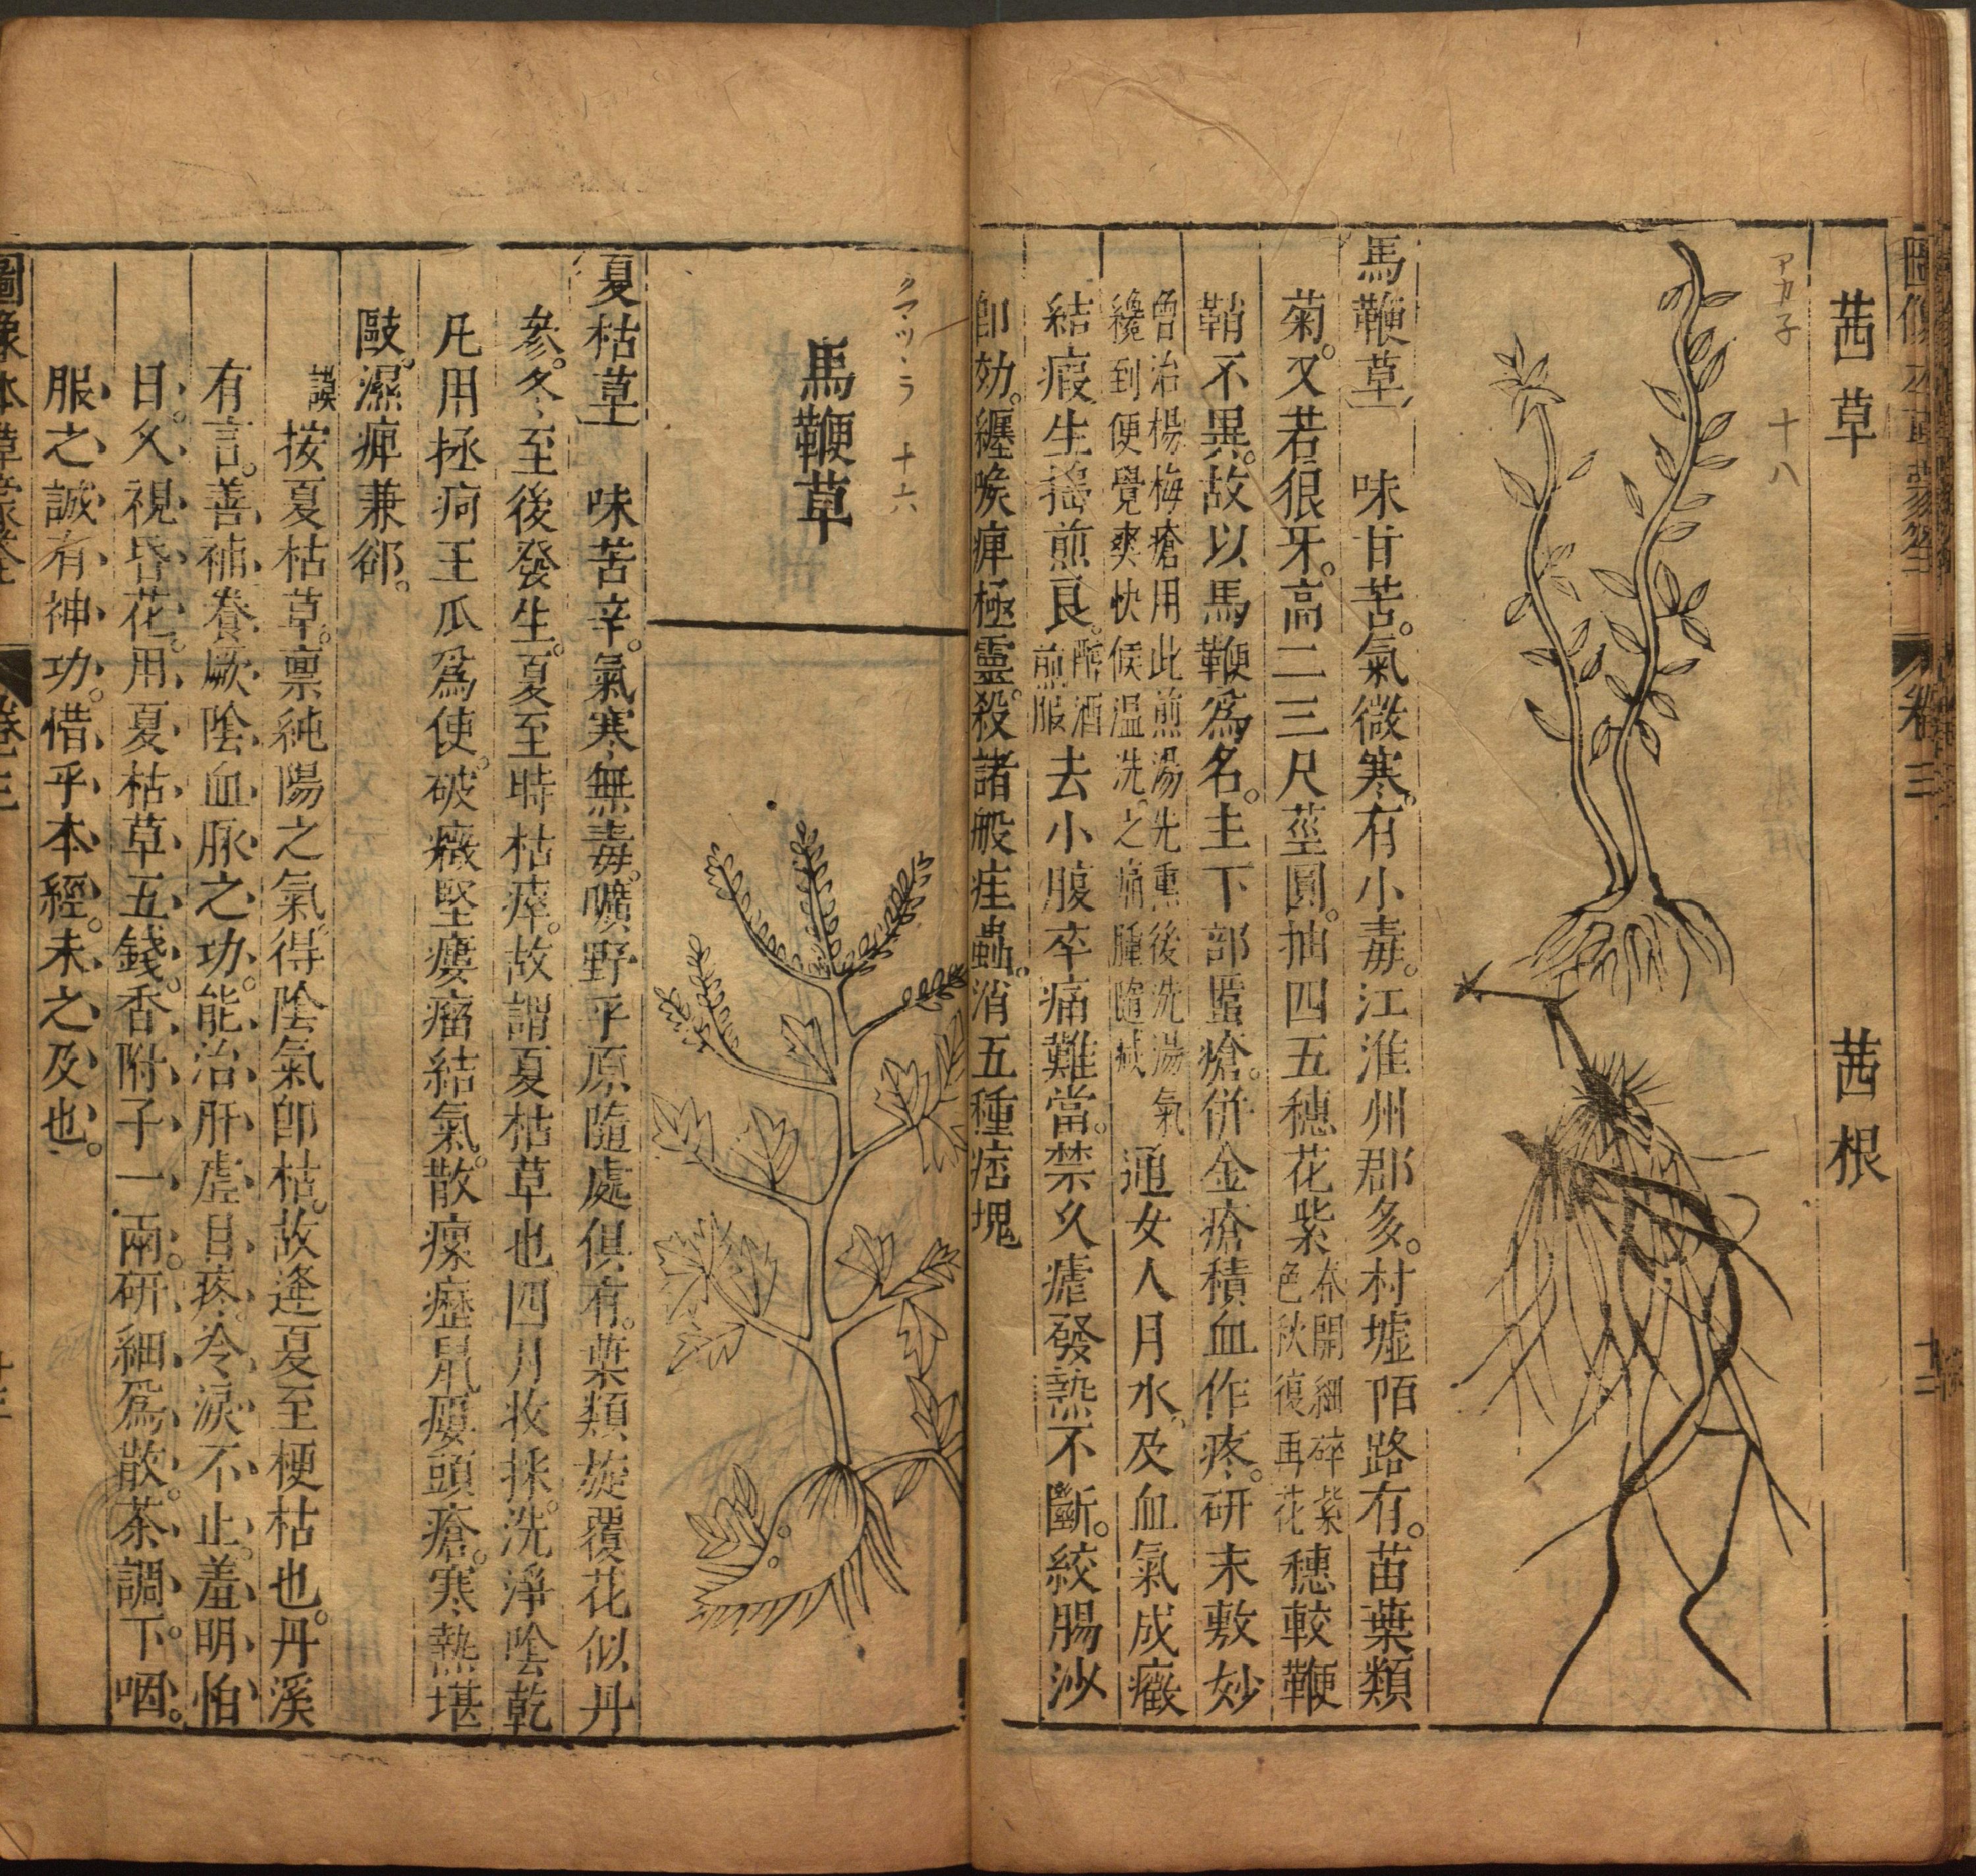 茜草
茜根
アカ子 十八
馬鞭草 味甘苦。氣微寒。有小毒。江淮州郡多。村墟陌路有。苗葉類
菊。又若狼牙。高二三尺莖圓。抽四五穗花紫春開細碎紫色秋復再花穗較鞭
鞘不異。故以馬鞭爲名。主下部䘌瘡。併金瘡積血作疼。研末敷妙
曾治楊梅瘡用此煎湯先熏後洗湯氣纔到便覺爽快候温洗之痛腫隨減通女人月水。及血氣成癥
結瘕生搗煎良。醡酒煎服去小腹卒痛難當。禁久瘧發熱不斷。絞腸沙
卽効。纏喉痺極靈。殺諸般疰蟲。消五種痞塊
クマツヽラ 十六
馬鞭草
夏枯草 味苦辛。氣寒。無毒。曠野平原隨處俱有。葉類旋覆花似丹
參。冬至後發生。夏至時枯瘁。故謂夏枯草也四月收採。洗淨陰乾
凡用拯疴王瓜爲使。破癥堅癭瘤結氣。散瘰癧鼠瘻頭瘡。寒熱堪
敺。濕痺兼郤。
謨按夏枯草。禀純陽之氣。得陰氣卽枯。故逢夏至梗枯也。丹溪
有言。善補養厥陰血脉之功。能治肝虛目疼。冷淚不止。羞明怕
日。久視昏花。用夏枯草五錢。香附子一兩。研細爲散。茶調下咽。
服之誠有神功。惜乎本經。未之及也。
圖像本草蒙筌
卷三